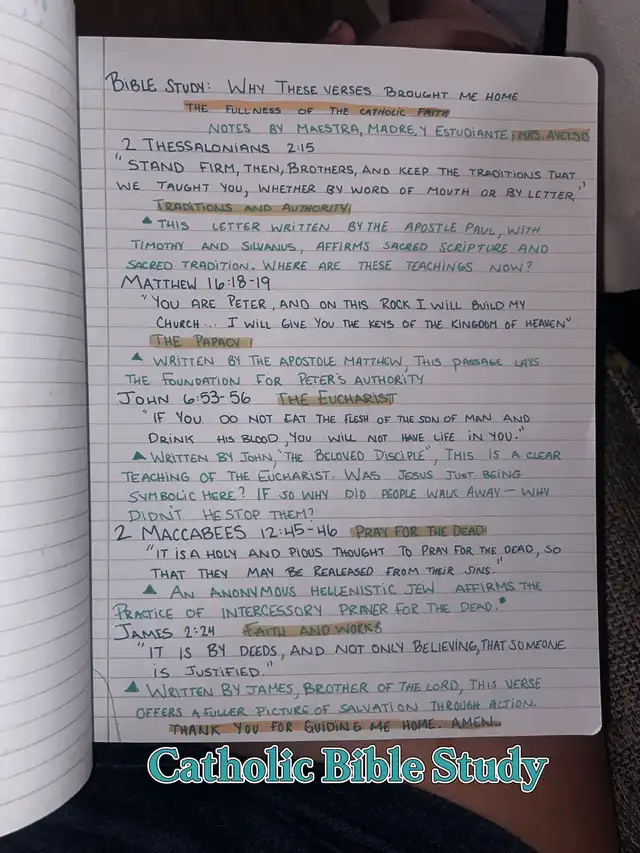 BIBLE STUDY: WHY THESE VERSES BROUGHT ME HOME
THE FULLNESS OF THE CATHOLIC FAITH
NOTES BY MAESTRA, MADRE, Y ESTUDIANTE, MRS. AVELSO
2 THESSALONIANS 2:15
"STAND FIRM, THEN, BROTHERS, AND KEEP THE TRADITIONS THAT
WE TAUGHT YOU, WHETHER BY WORD OF MOUTH OR BY LETTER."
TRADITIONS AND AUTHORITY
▲ THIS LETTER WRITTEN BY THE APOSTLE PAUL, WITH
TIMOTHY AND SILVANUS, AFFIRMS SACRED SCRIPTURE AND
SACRED TRADITION. WHERE ARE THESE TEACHINGS NOW?
MATTHEW 16:18-19
"YOU ARE PETER, AND ON THIS ROCK I WILL BUILD MY
CHURCH... I WILL GIVE YOU THE KEYS OF THE KINGDOM OF HEAVEN"
THE PAPACY
▲ WRITTEN BY THE APOSTOLE MATTHEW, THIS PASSAGE LAYS
THE FOUNDATION FOR PETER'S AUTHORITY
JOHN 6:53-56 THE EUCHARIST
"IF YOU DO NOT EAT THE FLESH OF THE SON OF MAN AND
DRINK HIS BLOOD, YOU WILL NOT HAVE LIFE IN YOU."
▲ WRITTEN BY JOHN, "THE BELOVED DISCIPLE", THIS IS A CLEAR
TEACHING OF THE EUCHARIST. WAS JESUS JUST BEING
SYMBOLIC HERE? IF SO WHY DID PEOPLE WALK AWAY — WHY
DIDN'T HE STOP THEM?
2 MACCABEES 12:45-46 PRAY FOR THE DEAD
"IT IS A HOLY AND PIOUS THOUGHT TO PRAY FOR THE DEAD, SO
THAT THEY MAY BE REALEASED FROM THEIR SINS."
▲ AN ANONYMOUS HELLENISTIC JEW AFFIRMS THE
PRACTICE OF INTERCESSORY PRAYER FOR THE DEAD.
JAMES 2:24 FAITH AND WORKS
"IT IS BY DEEDS, AND NOT ONLY BELIEVING, THAT SOMEONE
IS JUSTIFIED."
▲ WRITTEN BY JAMES, BROTHER OF THE LORD, THIS VERSE
OFFERS A FULLER PICTURE OF SALVATION THROUGH ACTION.
THANK YOU FOR GUIDING ME HOME. AMEN.
Catholic Bible Study